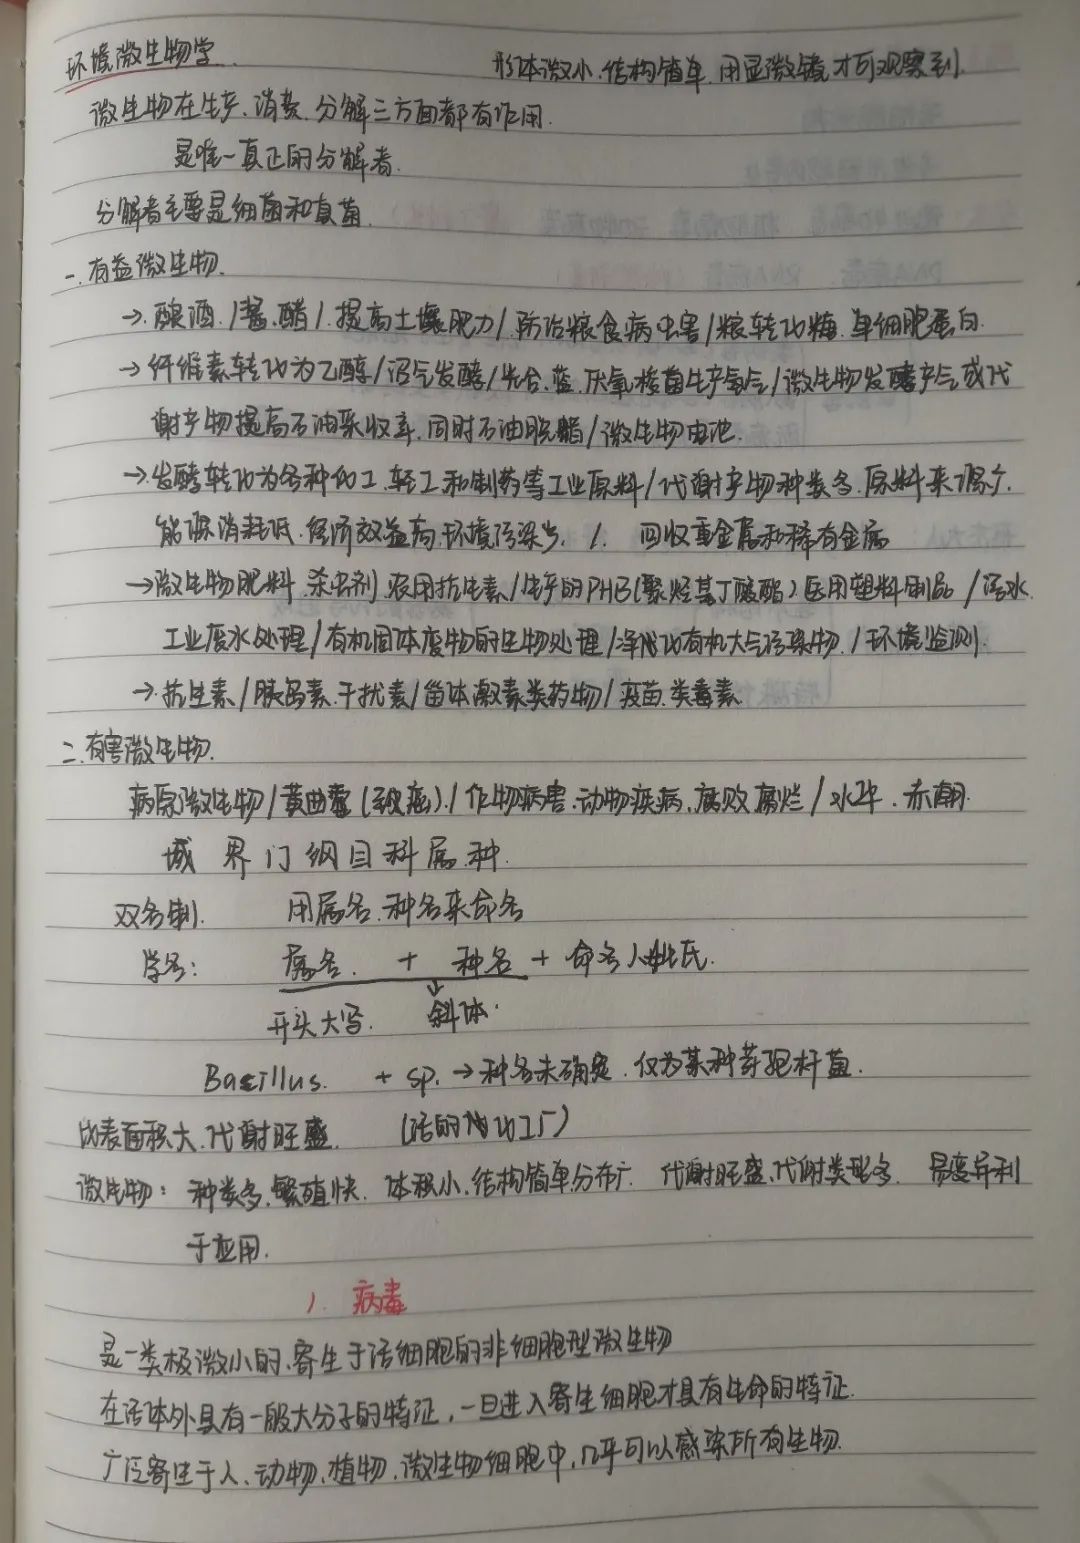 环境微生物学. 形体微小.结构简单.用显微镜才可观察到.
微生物在生产、消费、分解三方面都有作用.
是唯一真正的分解者.
分解者主要是细菌和真菌.
一.有益微生物.
→酿酒./酱.醋/.提高土壤肥力/.防治粮食病虫害/粮转化糖.单细胞蛋白.
→纤维素转化为乙醇/沼气发酵/光合.蓝.厌氧梭菌生产氢气/微生物发酵产气或代
谢产物提高石油采收率.同时石油脱脂/微生物电池.
→发酵转化为各种化工.轻工和制药等工业原料/代谢产物种类多.原料来源广.
能源消耗低.经济效益高.环境污染少. /. 回收重金属和稀有金属
→微生物肥料.杀虫剂.农用抗生素/生产的PHB(聚烃基丁酸酯)医用塑料制品/污水.
工业废水处理/有机固体废物的生物处理/净化有机大气污染物./环境监测.
→抗生素/胰岛素.干扰素/甾体激素类药物/疫苗.类毒素.
二.有害微生物.
病原微生物/黄曲霉(致癌)./作物病害.动物疾病.腐败腐烂/水华.赤潮.
域 界 门 纲 目 科 属.种.
双名制. 用属名.种名来命名
学名: 属名. + 种名 + 命名人姓氏.
开头大写. ↓斜体.
Bacillus. + sp. →种名未确定.仅为某种芽孢杆菌.
比表面积大.代谢旺盛. (活的化工厂)
微生物: 种类多.繁殖快. 体积小.结构简单.分布广. 代谢旺盛.代谢类型多. 易变异利
于应用.
1. 病毒
是一类极微小的.寄生于活细胞的非细胞型微生物
在活体外具有一般大分子的特征,一旦进入寄生细胞才具有生命的特征.
广泛寄生于人、动物、植物、微生物细胞中,几乎可以感染所有生物.